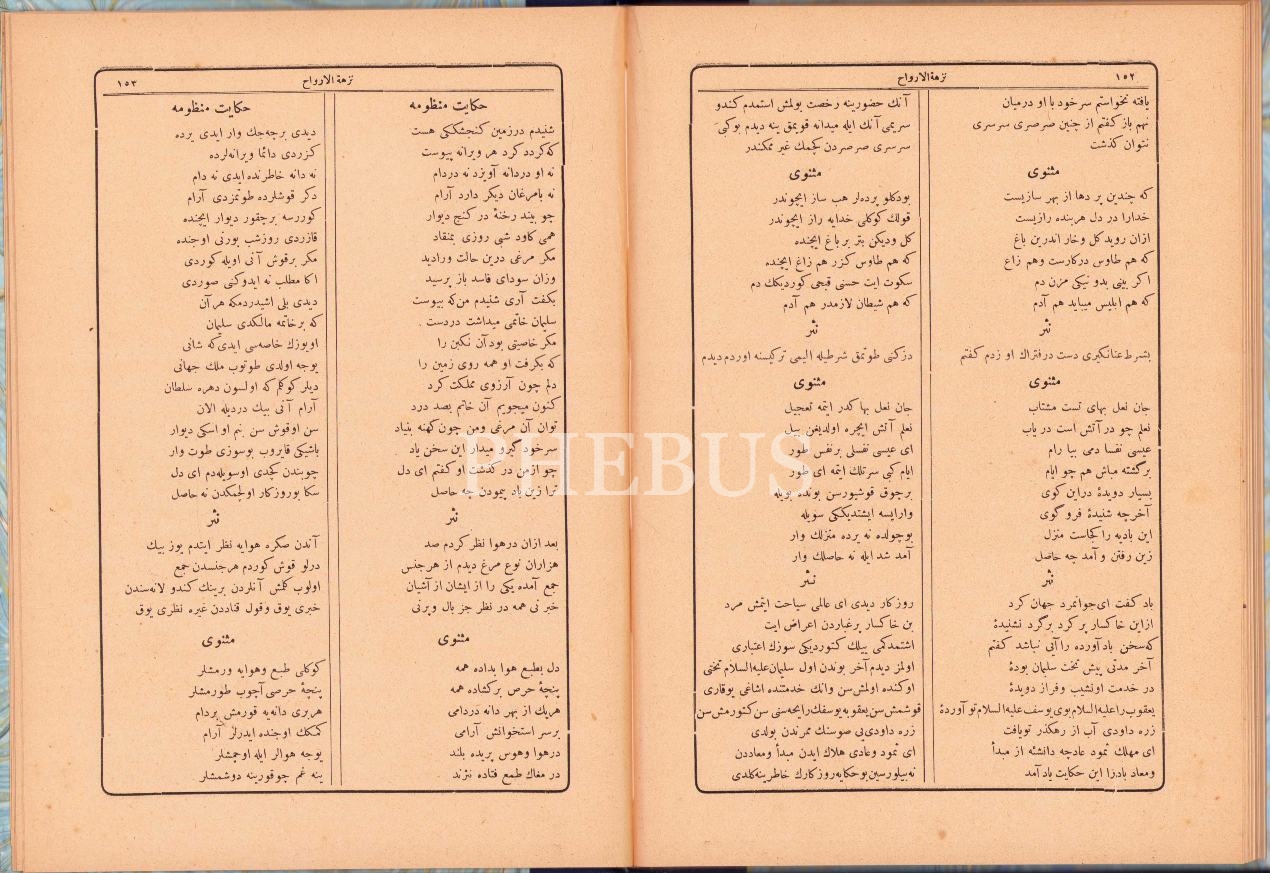 ١٥٢
نزهة الارواح
يافته نخواستم سر خود با او درميان
نهم باز كفتم از چنين صرصرى سرسرى
نتوان كذشت
مثنوى
كه چندين پر دها از بهر سازيست
خدارا در دل هربنده رازيست
ازان رويد كل وخار اندرين باغ
كه هم طاوس دركارست وهم زاغ
اكر بينى بدو نيكى مزن دم
كه هم ابليس ميبايد هم آدم
نثر
بشرط عنانكيرى دست درفتراك او زدم كفتم
مثنوى
جان نعل بهاى تست مشتاب
نعلم چو در آتش است در ياب
عيسى نفسا دمى بيا رام
برگشته مباش هم چو ايام
بسيار دويدۀ دراين كوى
آخر چه شنيدۀ فرو كوى
اين باديه را كجاست منزل
زين رفتن و آمد چه حاصل
نثر
باد كفت اى جوانمرد جهان كرد
ازاين خاكسار پر كرد برگرد نشنيدۀ
كه سخن باد آورده را آبى نباشد كفتم
آخر مدتى پيش تخت سليمان بودۀ
در خدمت اونشيب وفراز دويدۀ
يعقوب را عليه السلام بوى يوسف عليه السلام تو آوردۀ
زره داودى آب از رهكذر تو يافت
اى مهلك ثمود عادچه دانشته از مبدأ
ومعاد باد را اين حكايت ياد آمد
آنك حضورينه رخصت بولمش استمدم كندو
سريمى آنك ايله ميدانه قويمق ينه ديدم بوكبى
سرسرى صرصردن كچمك غير ممكندر
مثنوى
بودكلو پرده لر هب ساز ايچوندر
قولك كوكلى خدايه راز ايچوندر
كل وديكن بتر بر باغ ايچنده
كه هم طاوس كزر هم زاغ ايچنده
سكوت ايت حسنى قبحى كورديكك دم
كه هم شيطان لازمدر هم آدم
نثر
دزكنى طوتمق شرطيله اليمى تركيسنه اوردم ديدم
مثنوى
جان نعل بها كدر ايتمه تعجيل
نعلم آتش ايچره اولديغن بيل
اى عيسى نفسلى برنفس طور
ايام كبى سرتلك ايتمه اى طور
برچوق قوشيورسن بونده بويله
وارايسه ايشتديككى سويله
بوچولده نه يرده منزلك وار
آمد شد ايله نه حاصلك وار
نثر
روزكار ديدى اى عالمى سياحت ايتمش مرد
بن خاكسار پرغباردن اعراض ايت
اشتمدكمى ييلك كتورديكى سوزك اعتبارى
اولمز ديدم آخر بوندن اول سليمان عليه السلام تختى
اوكنده اولمش سن وانك خدمتنده اشاغى يوقارى
قوشمش سن يعقوبه يوسفك رايحه سنى سن كتورمش سن
زره داودى يى صوسنك ممرندن بولدى
اى ثمود وعادى هلاك ايدن مبدأ ومعاددن
نه بيلورسين بوحكايه روزكارك خاطرينه كلدى
نزهة الارواح
١٥٣
حكايت منظومه
شنيدم درزمين كنجشككى هست
كه كردد كرد هر ويرانه پيوست
نه او دردانه آويزد نه دردام
نه بامرغان ديكر دارد آرام
چو بيند رخنۀ در كنج ديوار
همى كاود شبى روزى بمنقاد
مكر مرغى درين حالت وراديد
وزان سوداى فاسد باز پرسيد
بكفت آرى شنيدم من كه پيوست
سليمان خاتمى ميداشت دردست
مكر خاصيتى بود آن نكين را
كه بكرفت او همه روى زمين را
دلم چون آرزوى مملكت كرد
كنون ميجويم آن خاتم بصد درد
توان آن مرغى ومن چون كهنه بنياد
سر خود كيرو ميدار اين سخن ياد
چو ازمن در كذشت او كفتم اى دل
ترا زين باد پيمودن چه حاصل
نثر
بعد ازان درهوا نظر كردم صد
هزاران نوع مرغ ديدم از هرجنس
جمع آمده يكى را از ايشان از آشيان
خبر نى همه در نظر جز بال وپرنى
مثنوى
دل بطبع هوا بداده همه
پنجۀ حرص بركشاده همه
هريك از بهر دانه دردامى
برسر استخوانش آرامى
درهوا وهوس پريده بلند
در مغاك طمع فتاده نژند
حكايت منظومه
ديدى برچه جك وار ايدى يرده
كزردى دائما ويرانه لرده
نه دانه خاطرنده ايدى نه دام
دكر قوشلرده طوتمزدى آرام
كوررسه برچقور ديوار ايچنده
قازردى روزشب بورنى اوجنده
مكر برقوش آنى اويله كوردى
اكا مطلب نه ايدوكنى صوردى
ديدى بلى اشيدردمكه هرآن
كه برخاتمه مالكدى سليمان
اويوزك خاصه سى ايدى كه شانى
يوجه اولدى طوتوب ملك جهانى
ديلر كوكلم كه اولسون دهره سلطان
آرام آنى بيك درديله الان
سن اوقوش سن بنم او اسكى ديوار
باشيكى قايروب بوسوزى طوت وار
چو بندن كچدى اوسويله دم اى دل
سكا بوروزكار اولچمكدن نه حاصل
نثر
آندن صكره هوايه نظر ايتدم يوز بيك
درلو قوش كوردم هرجنسدن جمع
اولوب كلمش آنلردن برينك كندو لانه سندن
خبرى يوق وقول قناددن غيره نظرى يوق
مثنوى
كوكلى طبع وهوايه ورمشلر
پنچۀ حرصى آچوب طورمشلر
هربرى دانه يه قورمش بردام
كمكك اوجنده ايدرلر آرام
يوجه هوالر ايله اوچمشلر
ينه غم چوقورينه دوشمشلر
PHEBUS